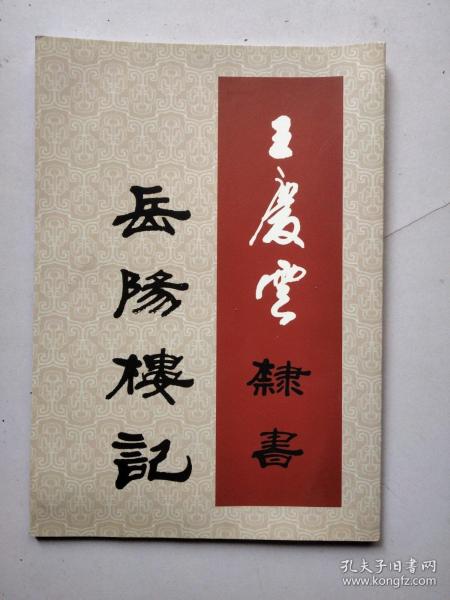 王慶雲
隸書
岳陽樓記
孔夫子旧书网
www.kongfz.com